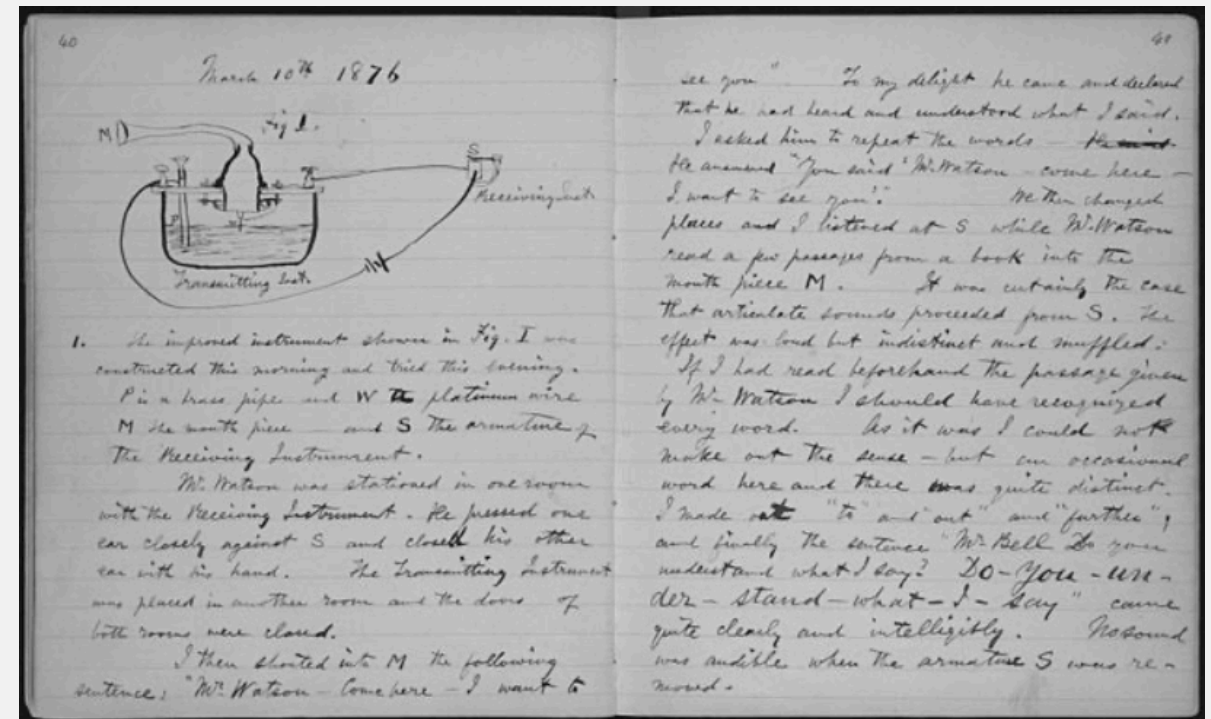 40
March 10th 1876
Fig I.
M
S
Receiving Inst.
P
W
Transmitting Inst.
1. The improved instrument shown in Fig. I was
constructed this morning and tried this evening.
P is a brass pipe and W the platinum wire
M the mouth piece and S the armature of
the Receiving Instrument.
Mr. Watson was stationed in one room
with the Receiving Instrument. He pressed one
ear closely against S and closed his other
ear with his hand. The Transmitting Instrument
was placed in another room and the doors of
both rooms were closed.
I then shouted into M the following
sentence: "Mr. Watson – Come here – I want to
41
see you" To my delight he came and declared
that he had heard and understood what I said.
I asked him to repeat the words – He said
He answered "You said 'Mr. Watson – come here –
I want to see you'." We then changed
places and I listened at S while Mr. Watson
read a few passages from a book into the
mouth piece M. It was certainly the case
that articulate sounds proceeded from S. The
effect was loud but indistinct and muffled.
If I had read beforehand the passage given
by Mr. Watson I should have recognized
every word. As it was I could not
make out the sense – but an occasional
word here and there was quite distinct.
I made out "to" and "out" and "further";
and finally the sentence "Mr. Bell Do you
understand what I say? Do – you – un –
der – stand – what – I – say" came
quite clearly and intelligibly. No sound
was audible when the armature S was re –
moved.